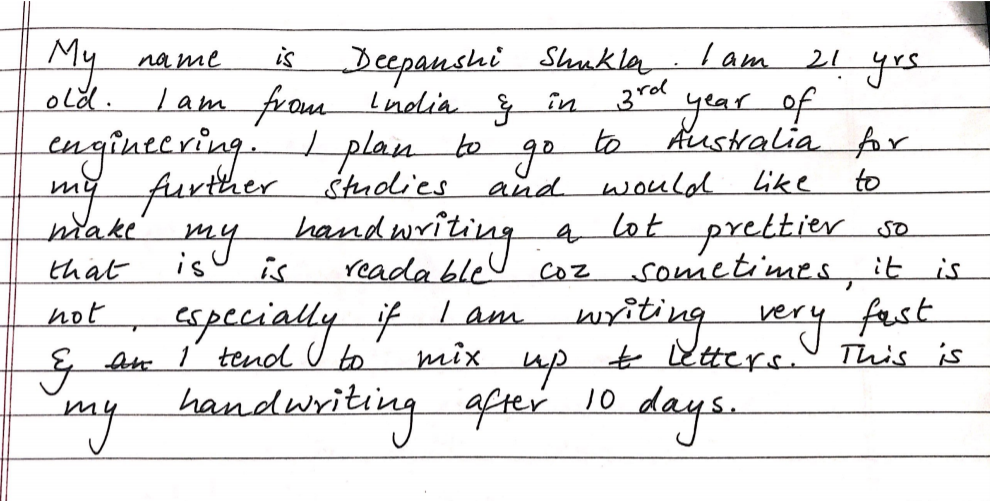 My name is Deepanshi Shukla. I am 21 yrs
old. I am from India & in 3rd year of
engineering. I plan to go to Australia for
my further studies and would like to
make my handwriting a lot prettier so
that is is readable coz sometimes, it is
not, especially if I am writing very fast
& an I tend to mix up t letters. This is
my handwriting after 10 days.